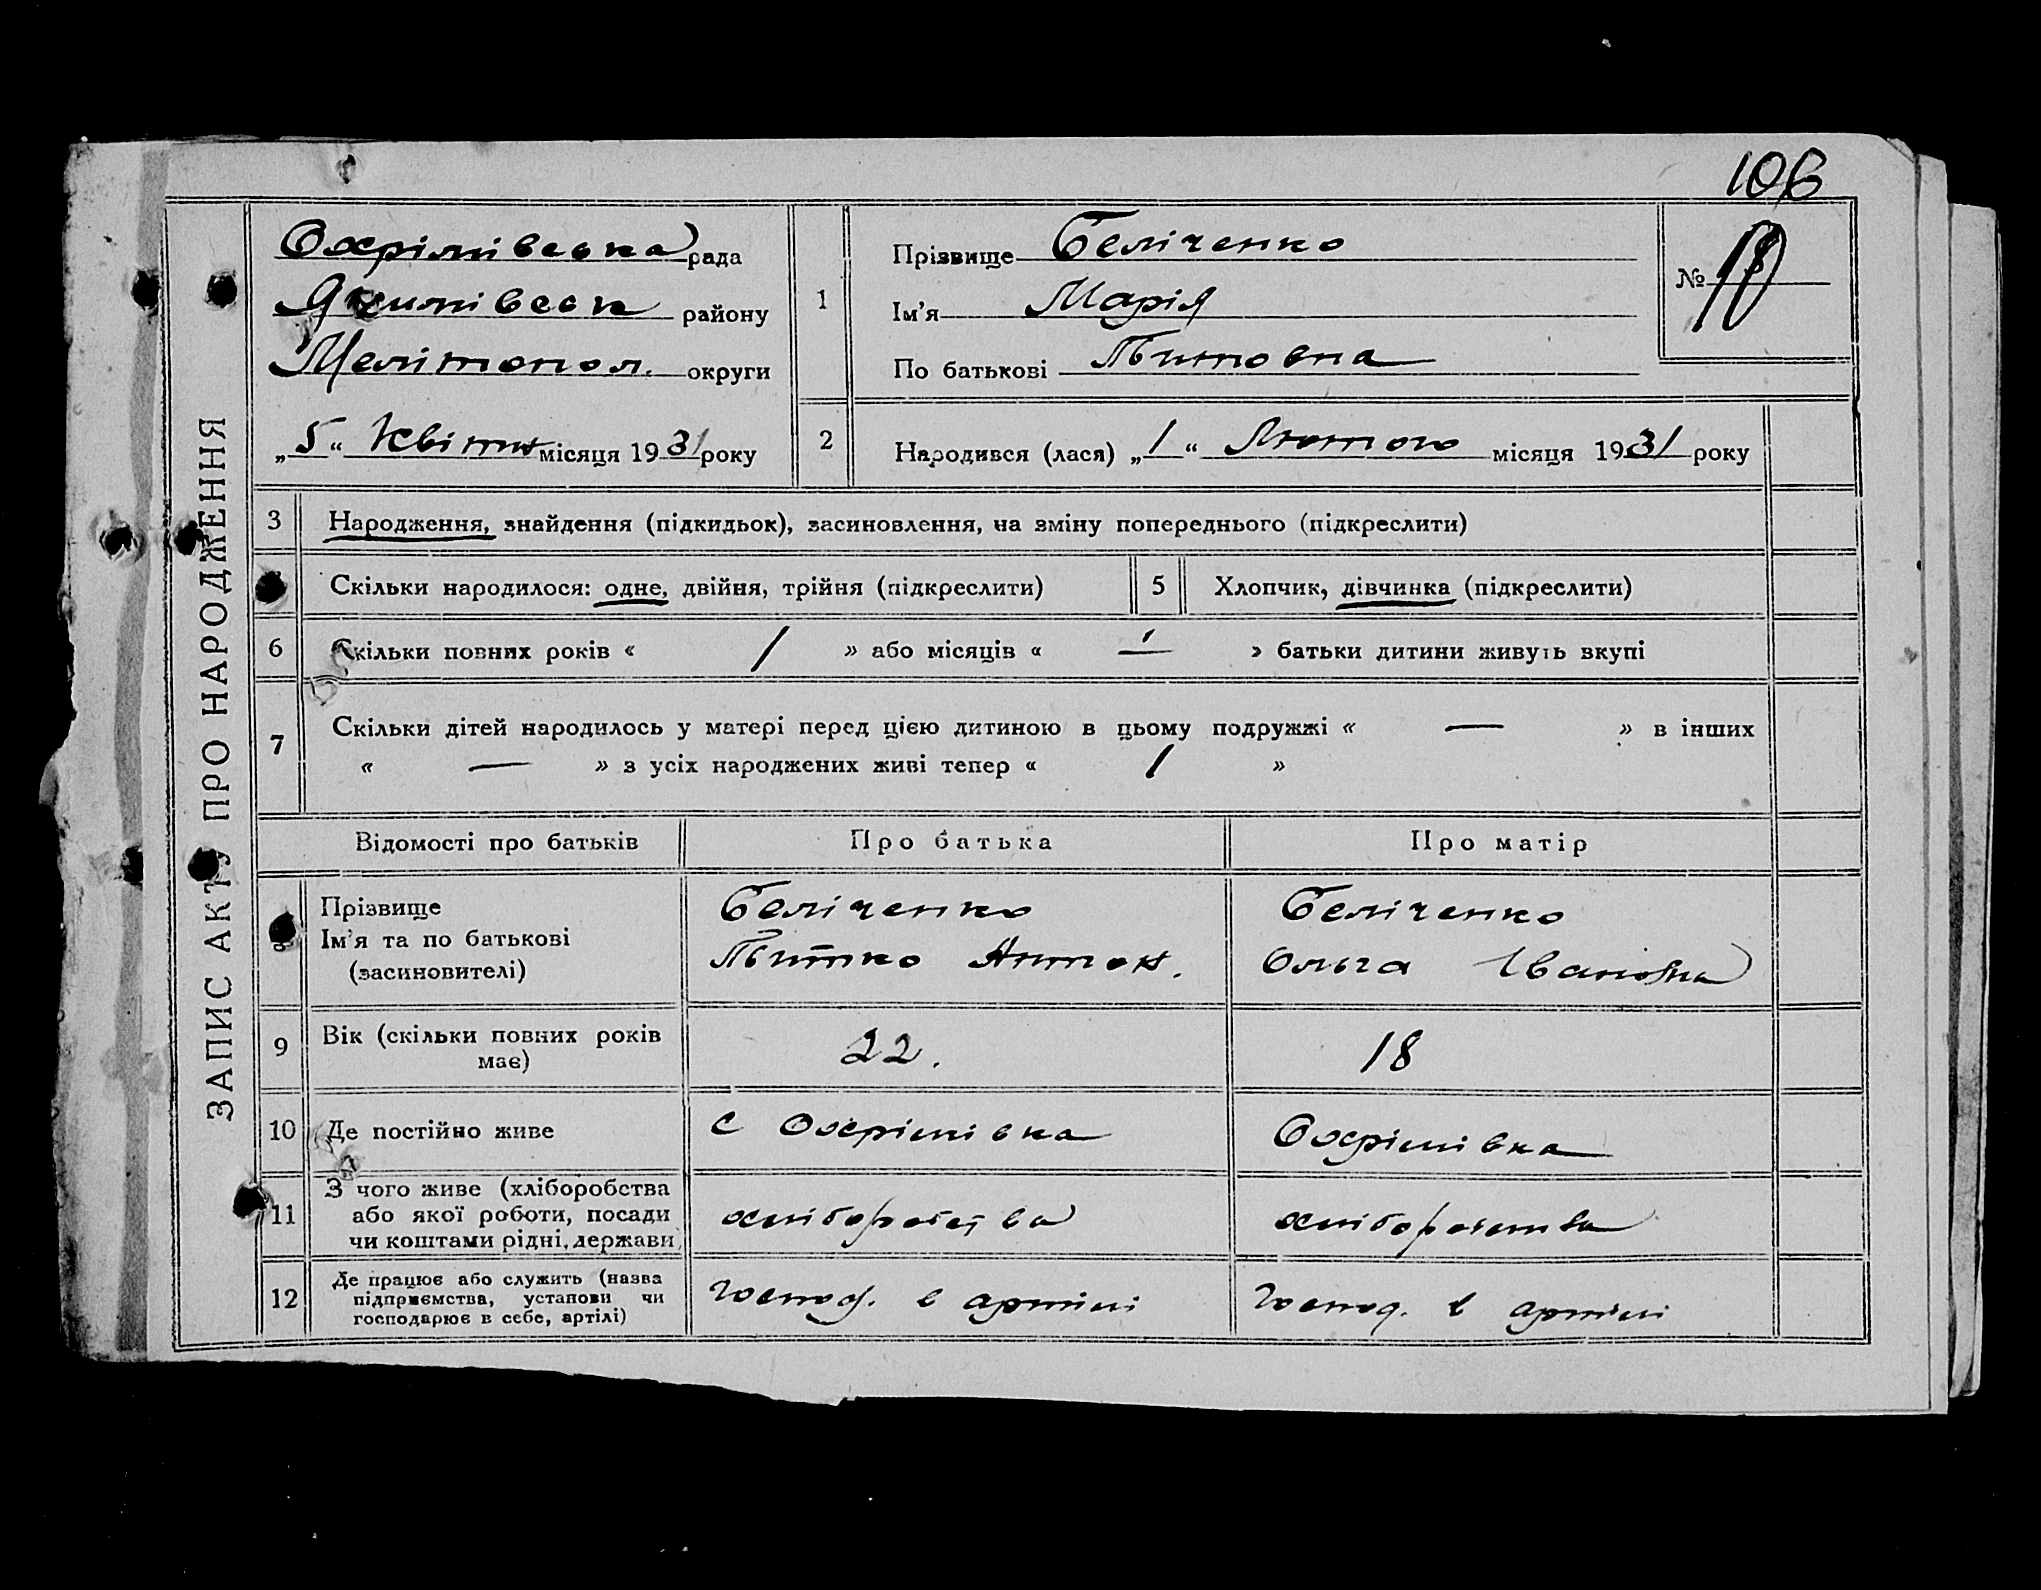 106
ЗАПИС АКТУ ПРО НАРОДЖЕННЯ
Охрімівська рада
Якимівськ району
Мелітопол. округи
„5“ Квітня місяця 1931 року
1
Прізвище Белiченко
Ім'я Марія
По батькові Титовна
№
2
Народився (лася) „1“ Лютого місяця 1931 року
3 Народження, знайдення (підкидьок), засиновлення, на зміну попереднього (підкреслити)
Скільки народилося: одне, двійня, трійня (підкреслити) 5 Хлопчик, дівчинка (підкреслити)
6 Скільки повних років « 1 » або місяців « — » батьки дитини живуть вкупі
7 Скільки дітей народилось у матері перед цією дитиною в цьому подружжі « — » в інших
« — » з усіх народжених живі тепер « 1 »
Відомості про батьків Про батька Про матір
Прізвище Беліченко Беліченко
Ім'я та по батькові Титко Антон. Ольга Івановна
(засиновителі)
9 Вік (скільки повних років має) 22. 18
10 Де постійно живе с Охрімівка Охрімівка
11 З чого живе (хліборобства
або якої роботи, посади хліборобства хліборобства
чи коштами рідні, держави)
12 Де працює або служить (назва
підприємства, установи чи господ. в артілі господ. в артілі
господарює в себе, артілі)